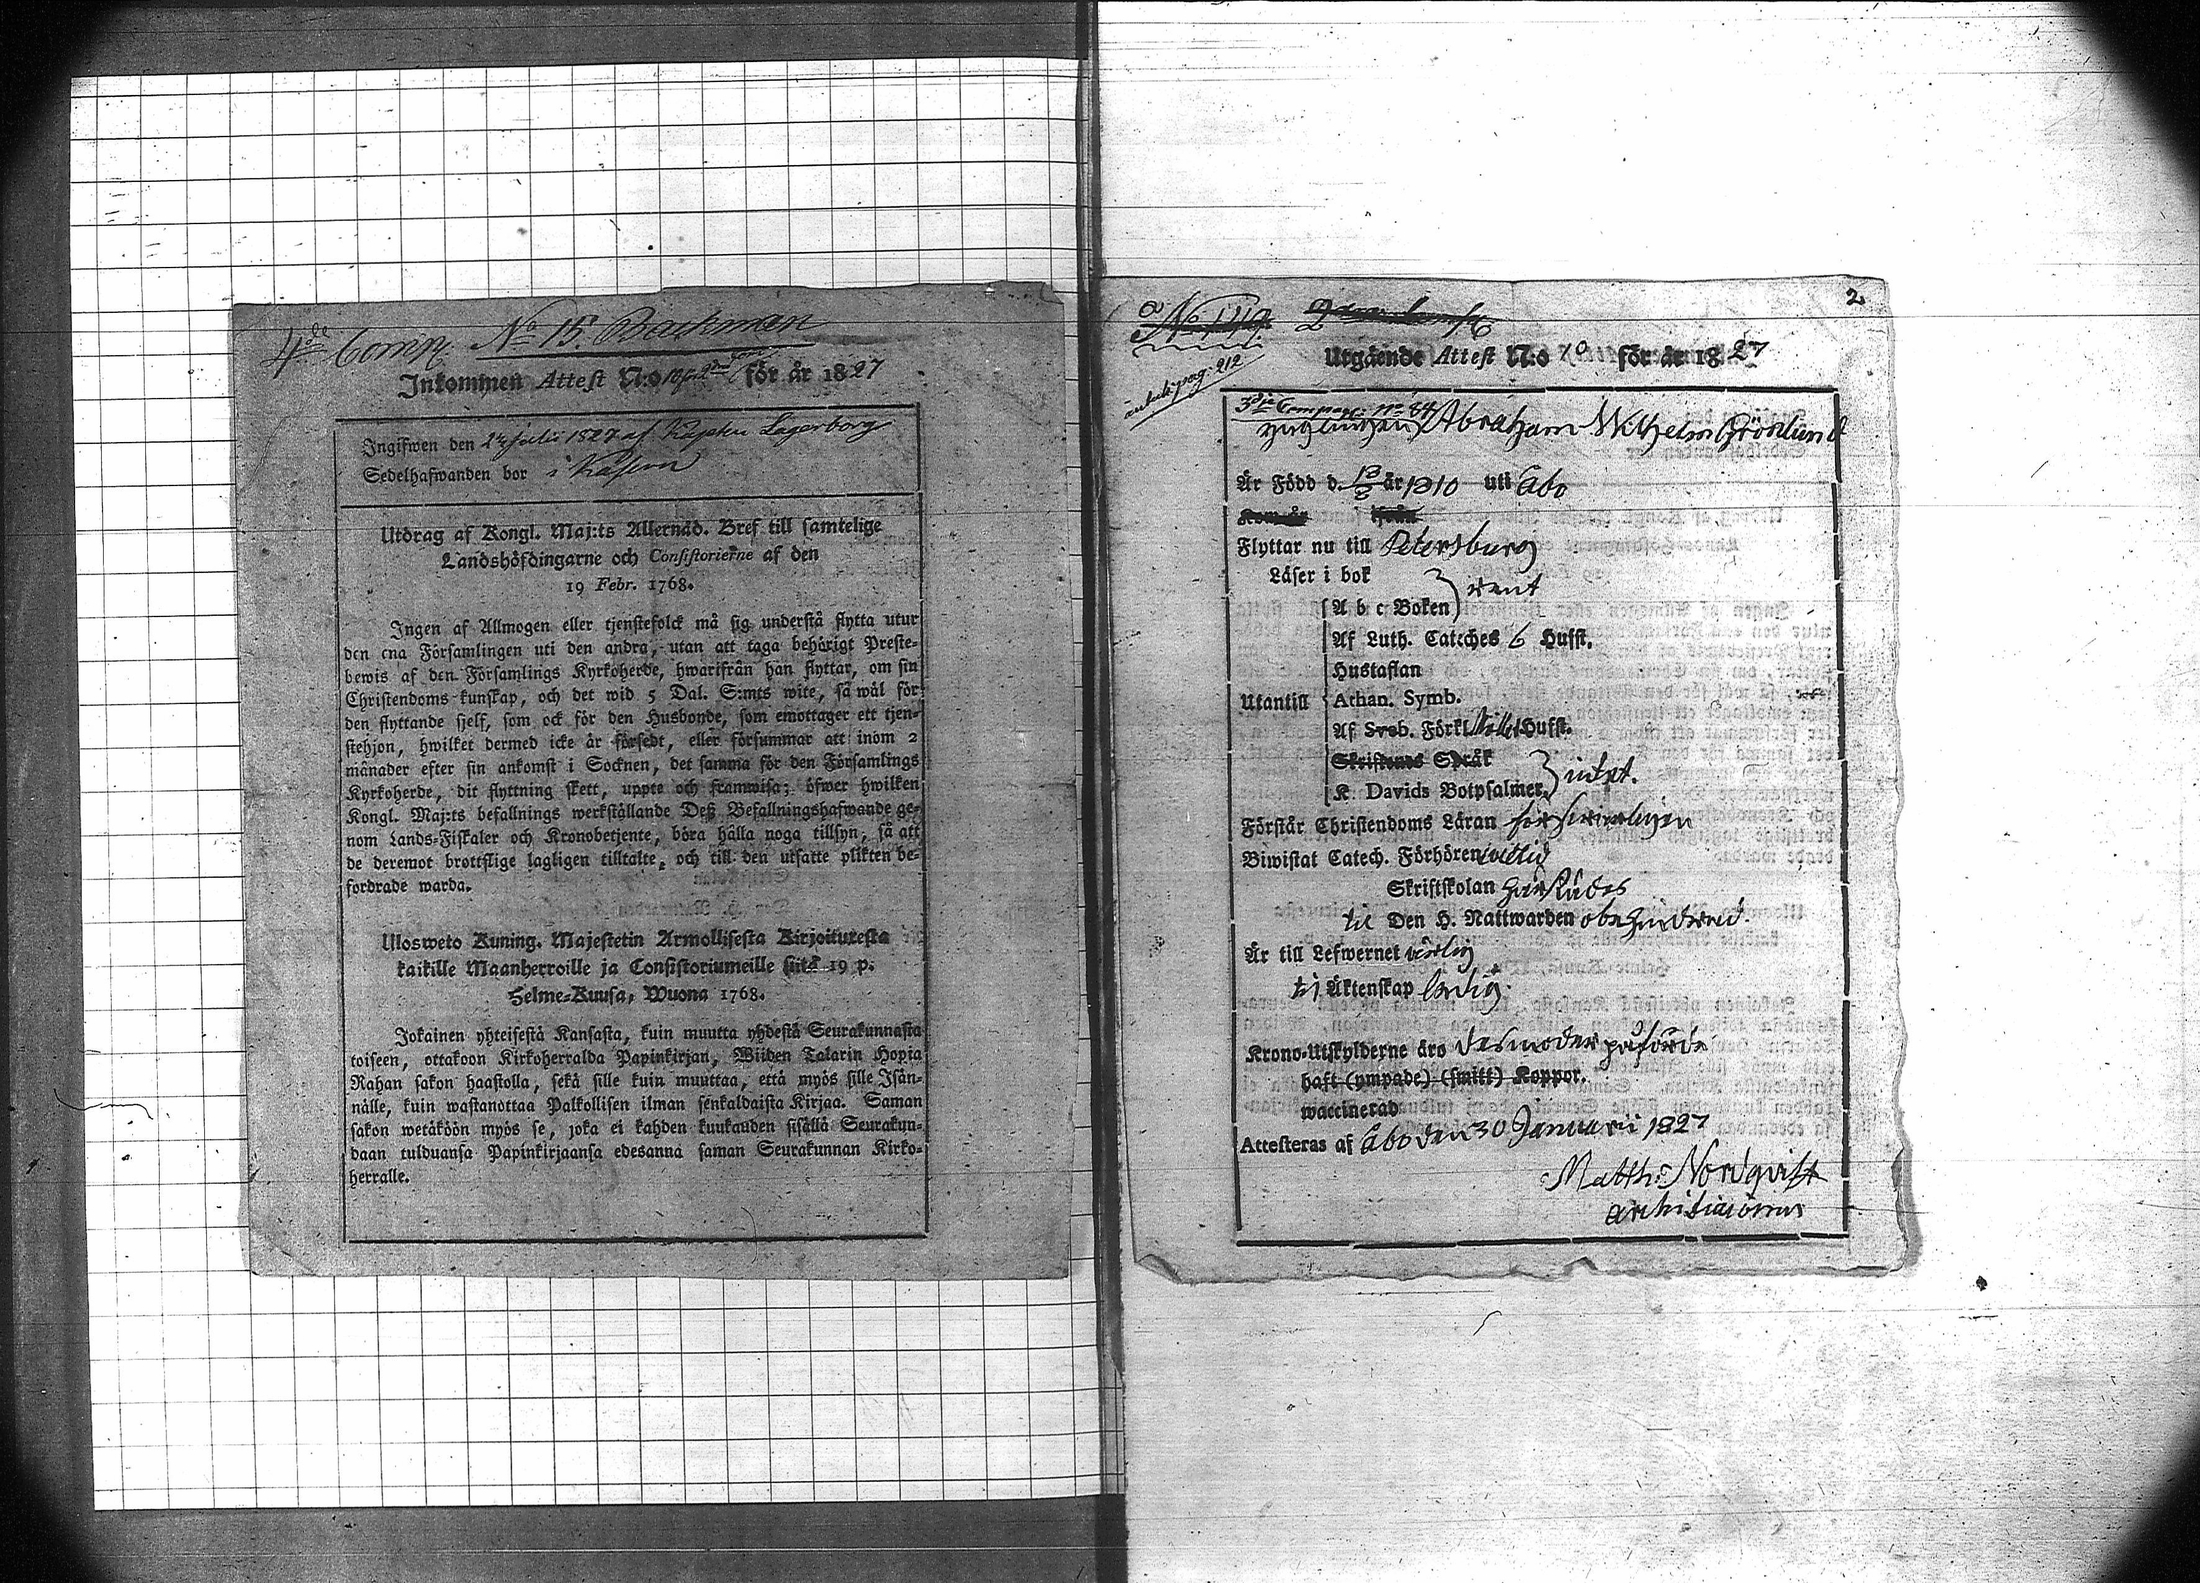 4de Comp. No 15. Backman
Inkommen Attest N:o för år 1827
Ingifwen den Julii 1827 af Kapten Lagerborg
Sedelhafwanden bor i
Utdrag af Kongl. Maj:ts Allernåd. Bref till samtelige
Landshöfdingarne och Consistorierne af den
19 Febr. 1768.
Ingen af Allmogen eller tjenstefolck må sig understå flytta utur
den ena Församlingen uti den andra, utan att taga behörigt Preste-
bewis af den Församlings Kyrkoherde, hwarifrån han flyttar, om sin
Christendoms kunskap, och det wid 5 Dal. S:mts wite, så wäl för
den flyttande sjelf, som ock för den Husbonde, som emottager ett tjen-
stehjon, hwilket dermed icke är försedt, eller försummar att inom 2
månader efter sin ankomst i Socknen, det samma för den Församlings
Kyrkoherde, dit flyttning skett, uppte och framwisa; öfwer hwilken
Kongl. Maj:ts befallnings werkställande Deß Befallningshafwande ge-
nom Lands-Fiskaler och Kronobetjente, böra hålla noga tillsyn, så att
de deremot brottslige lagligen tilltalte, och till den utsatte plikten be-
fordrade warda.
Ulosweto Kuning. Majestetin Armollisesta Kirjoituresta
kaikille Maanherroille ja Consistoriumeille siitä 19 p.
Helme-Kuusa, Wuona 1768.
Jokainen yhteisestä Kansasta, kuin muutta yhdestä Seurakunnasta
toiseen, ottakoon Kirkoherralda Papinkirjan, Wiiden Talarin Hopia
Rahan sakon haastolla, sekä sille kuin muuttaa, että myös sille Isän-
nälle, kuin wastanottaa Palkollisen ilman senkaldaista Kirjaa. Saman
sakon wetäköön myös se, joka ei kahden kuukauden sisällä Seurakun-
daan tulduansa Papinkirjaansa edesanna saman Seurakunnan Kirko-
herralle.
2
pag. 212
Utgående Attest N:o 70 för år 1827
3dje Compag: no 84
Ynglingen Abraham Wilhelm Grönlund
Är Född d. 13/8 år 1810 uti Åbo
Flyttar nu till Petersburg
Läser i bok
A b c Boken rent
Af Luth. Cateches 6 Hufst.
Hustaflan
Utantill Athan. Symb.
Af Sveb. Förkl. Hufst.
Skriftenes Språk
K. Davids Botpsalmer. intet.
Förstår Christendoms Läran försvarligen
Biwistat Catech. Förhören
Skriftskolan
Den H. Nattwarden obehindrad.
Är till Lefwernet ärlig
till Äktenskap ledig.
Krono-Utskylderne äro
haft (ympade) (smitt) Koppor.
waccinerad
Attesteras af Åbo den 30 Januarii 1827
Matth: Nordqvist